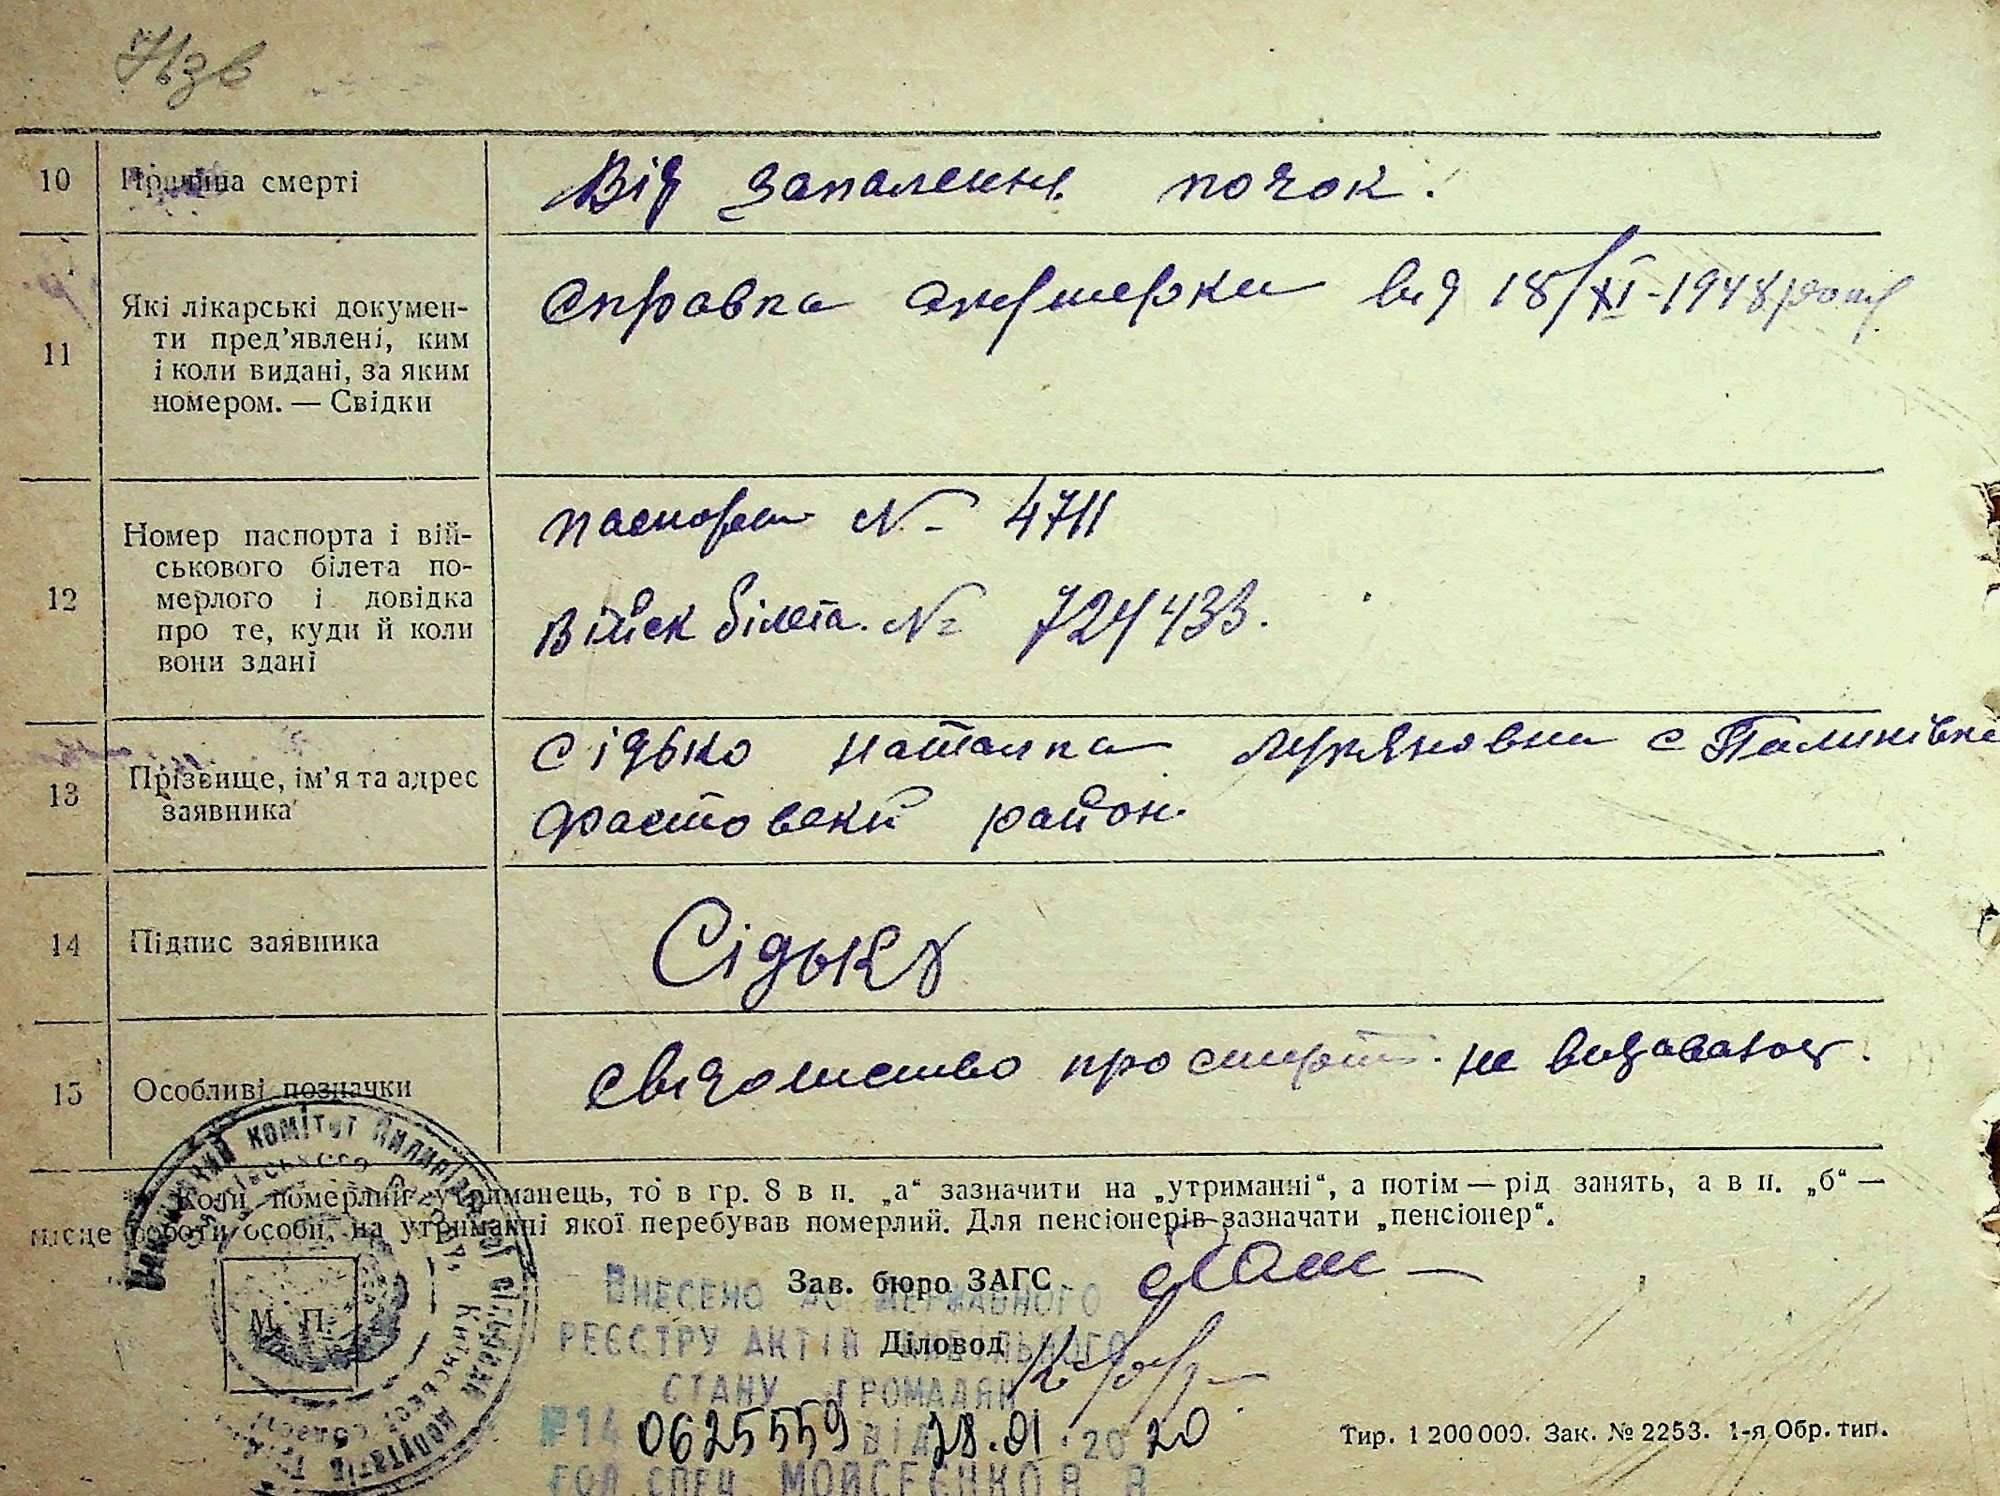 10 Причина смерті Від запалення почок.
11 Які лікарські докумен-
ти пред'явлені, ким
і коли видані, за яким
номером. — Свідки
Справка акушерки від 18/XI-1948 року
12 Номер паспорта і вій-
ськового білета по-
мерлого і довідка
про те, куди й коли
вони здані
паспорт № 4711
Війск білета. № 724433.
13 Прізвище, ім'я та адрес
заявника
Сідько Наталка с Палинівка
Фастовский район.
14 Підпис заявника Сідько
15 Особливі позначки
свідомство про смерт. не видавалось.
* Коли померлий утриманець, то в гр. 8 в п. „а“ зазначити на „утриманні“, а потім — рід занять, а в п. „б“ —
місце роботи особи, на утриманні якої перебував померлий. Для пенсіонерів зазначати „пенсіонер“.
Зав. бюро ЗАГС
Діловод
М. П.
ВНЕСЕНО ДО ДЕРЖАВНОГО
РЕЄСТРУ АКТІВ ЦИВІЛЬНОГО
СТАНУ ГРОМАДЯН
№14 0625559 ВІД 28.01.2020
ГОЛ.СПЕЦ. МОЙСЕЄНКО В В
Тир. 1 200 000. Зак. № 2253. 1-я Обр. тип.